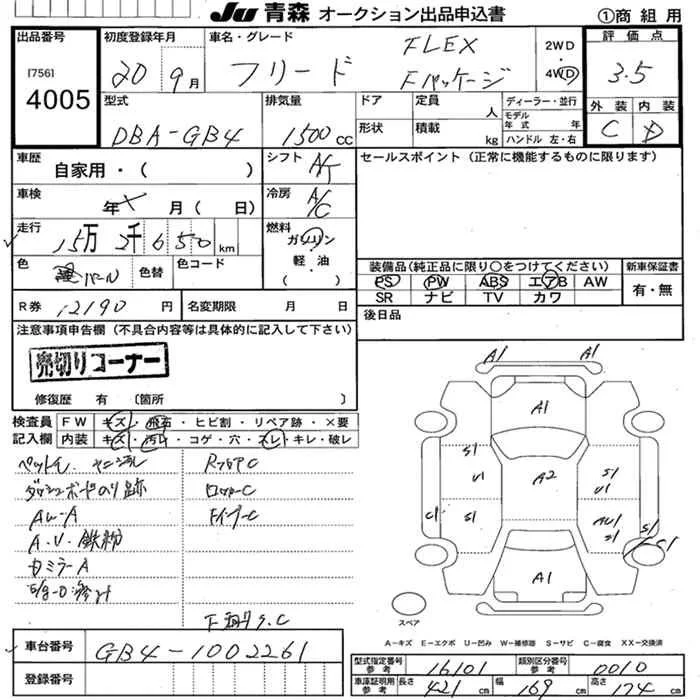 Ju 青森 オークション出品申込書 ①商組用
出品番号 初度登録年月 車名・グレード 評価点
[756] 20 9月 フリード FLEX Fパッケージ 2WD・4WD 3.5
4005
型式 排気量 ドア 定員 人 ディーラー・並行 外装 内装
DBA-GB4 1500cc 形状 積載 kg モデル年式 年 C D
ハンドル 左・右
車歴 自家用・( ) シフト A/T セールスポイント(正常に機能するものに限ります)
車検 年 月(日) 冷房 A/C
走行 15万2千650km 燃料 ガソリン・軽油( )
色 パール 色替 色コード
装備品(純正品に限り○をつけてください) 新車保証書
PS PW ABS エアB AW 有・無
SR ナビ TV カワ
R券 12190円 名変期限 月 日 後日品
注意事項申告欄(不具合内容等は具体的に記入して下さい)
売切りコーナー
修復歴 有 〔箇所 〕
検査員 FW キズ・飛石・ヒビ割・リペア跡・×要
記入欄 内装 キズ・汚れ・コゲ・穴・スレ・キレ・破レ
RフロアC
ダッシュボードのり跡 ロッカーC
AW-A
A・U・鉄粉
ドミラーA
A1 A1
A1
S1 U1 A2 S1 U1
C1 S1 AU1 S1 S1
A1
スペア
A-キズ E-エクボ U-凹み W-補修跡 S-サビ C-腐食 XX-交換済
車台番号 GB4-1002261
登録番号
型式指定番号 参考 16101 類別区分番号 参考 0010
車庫証明用 参考 長さ 421cm 幅 169cm 高さ 174cm